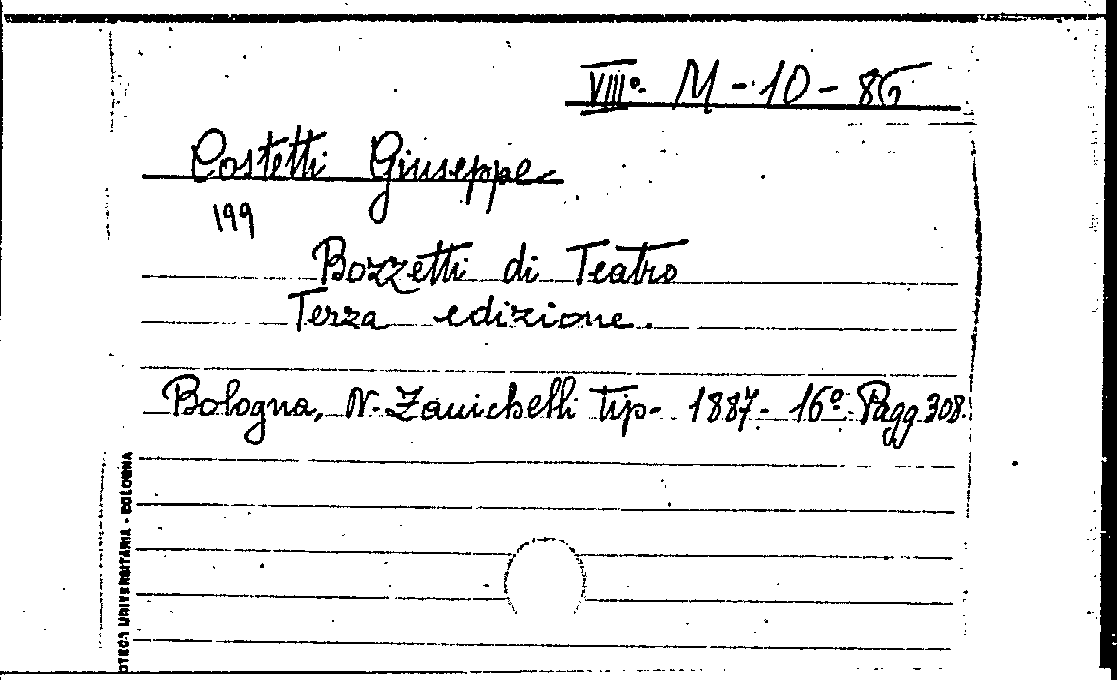 VIIIº. M - 10 - 86
Costetti Giuseppe
199
Bozzetti di Teatro
Terza edizione.
Bologna, N. Zanichelli tip. 1887. 16º. Pagg. 308.
OTECA UNIVERSITARIA - BOLOGNA